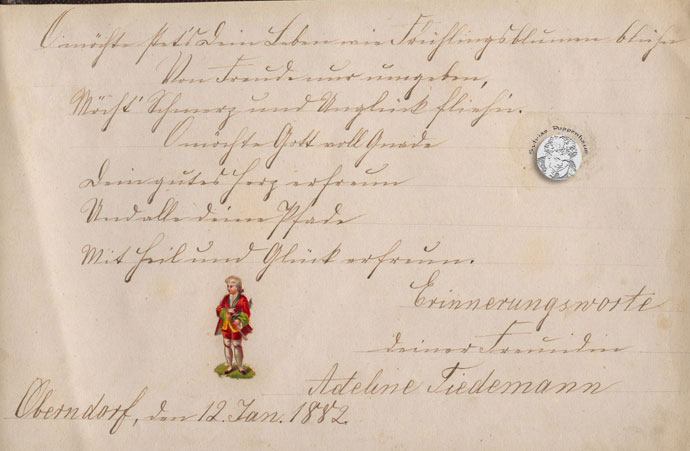 O möchte stets Dein Leben wie Frühlingsblumen blühn
Von Freude nur umgeben,
Möcht' Schmerz und Unglück fliehn.
O möchte Gott voll Gnade
Dein gutes Herz erfreun
Und alle deine Pfade
Mit Heil und Glück erfreun.
Erinnerungsworte
deiner Freundin
Adeline Tiedemann
Oberndorf, den 12. Jan. 1882.
Puppenhaus